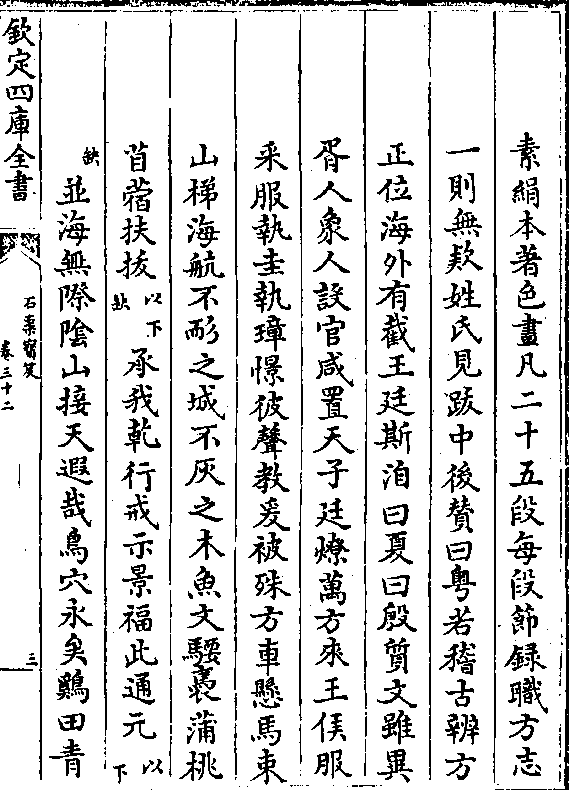 素絹本著色畫凡二十五段每段節録職方志
一則無欵姓氏見跋中後賛曰粤若稽古辨方
正位海外有截王廷斯洎曰夏曰殷質文雖異
胥人象人設官咸置天子廷燎萬方來王侯服
采服執圭執璋憬彼聲教爰被殊方車懸馬束
山梯海航不彫之城不灰之木魚文騕褭蒲桃
苜蓿扶拔以下缺承我乾行戒示景福此通元以下
缺並海無際陰山接天遐哉鳥穴永矣鷄田青
欽定四庫全書
石渠寳笈
卷三十二
三